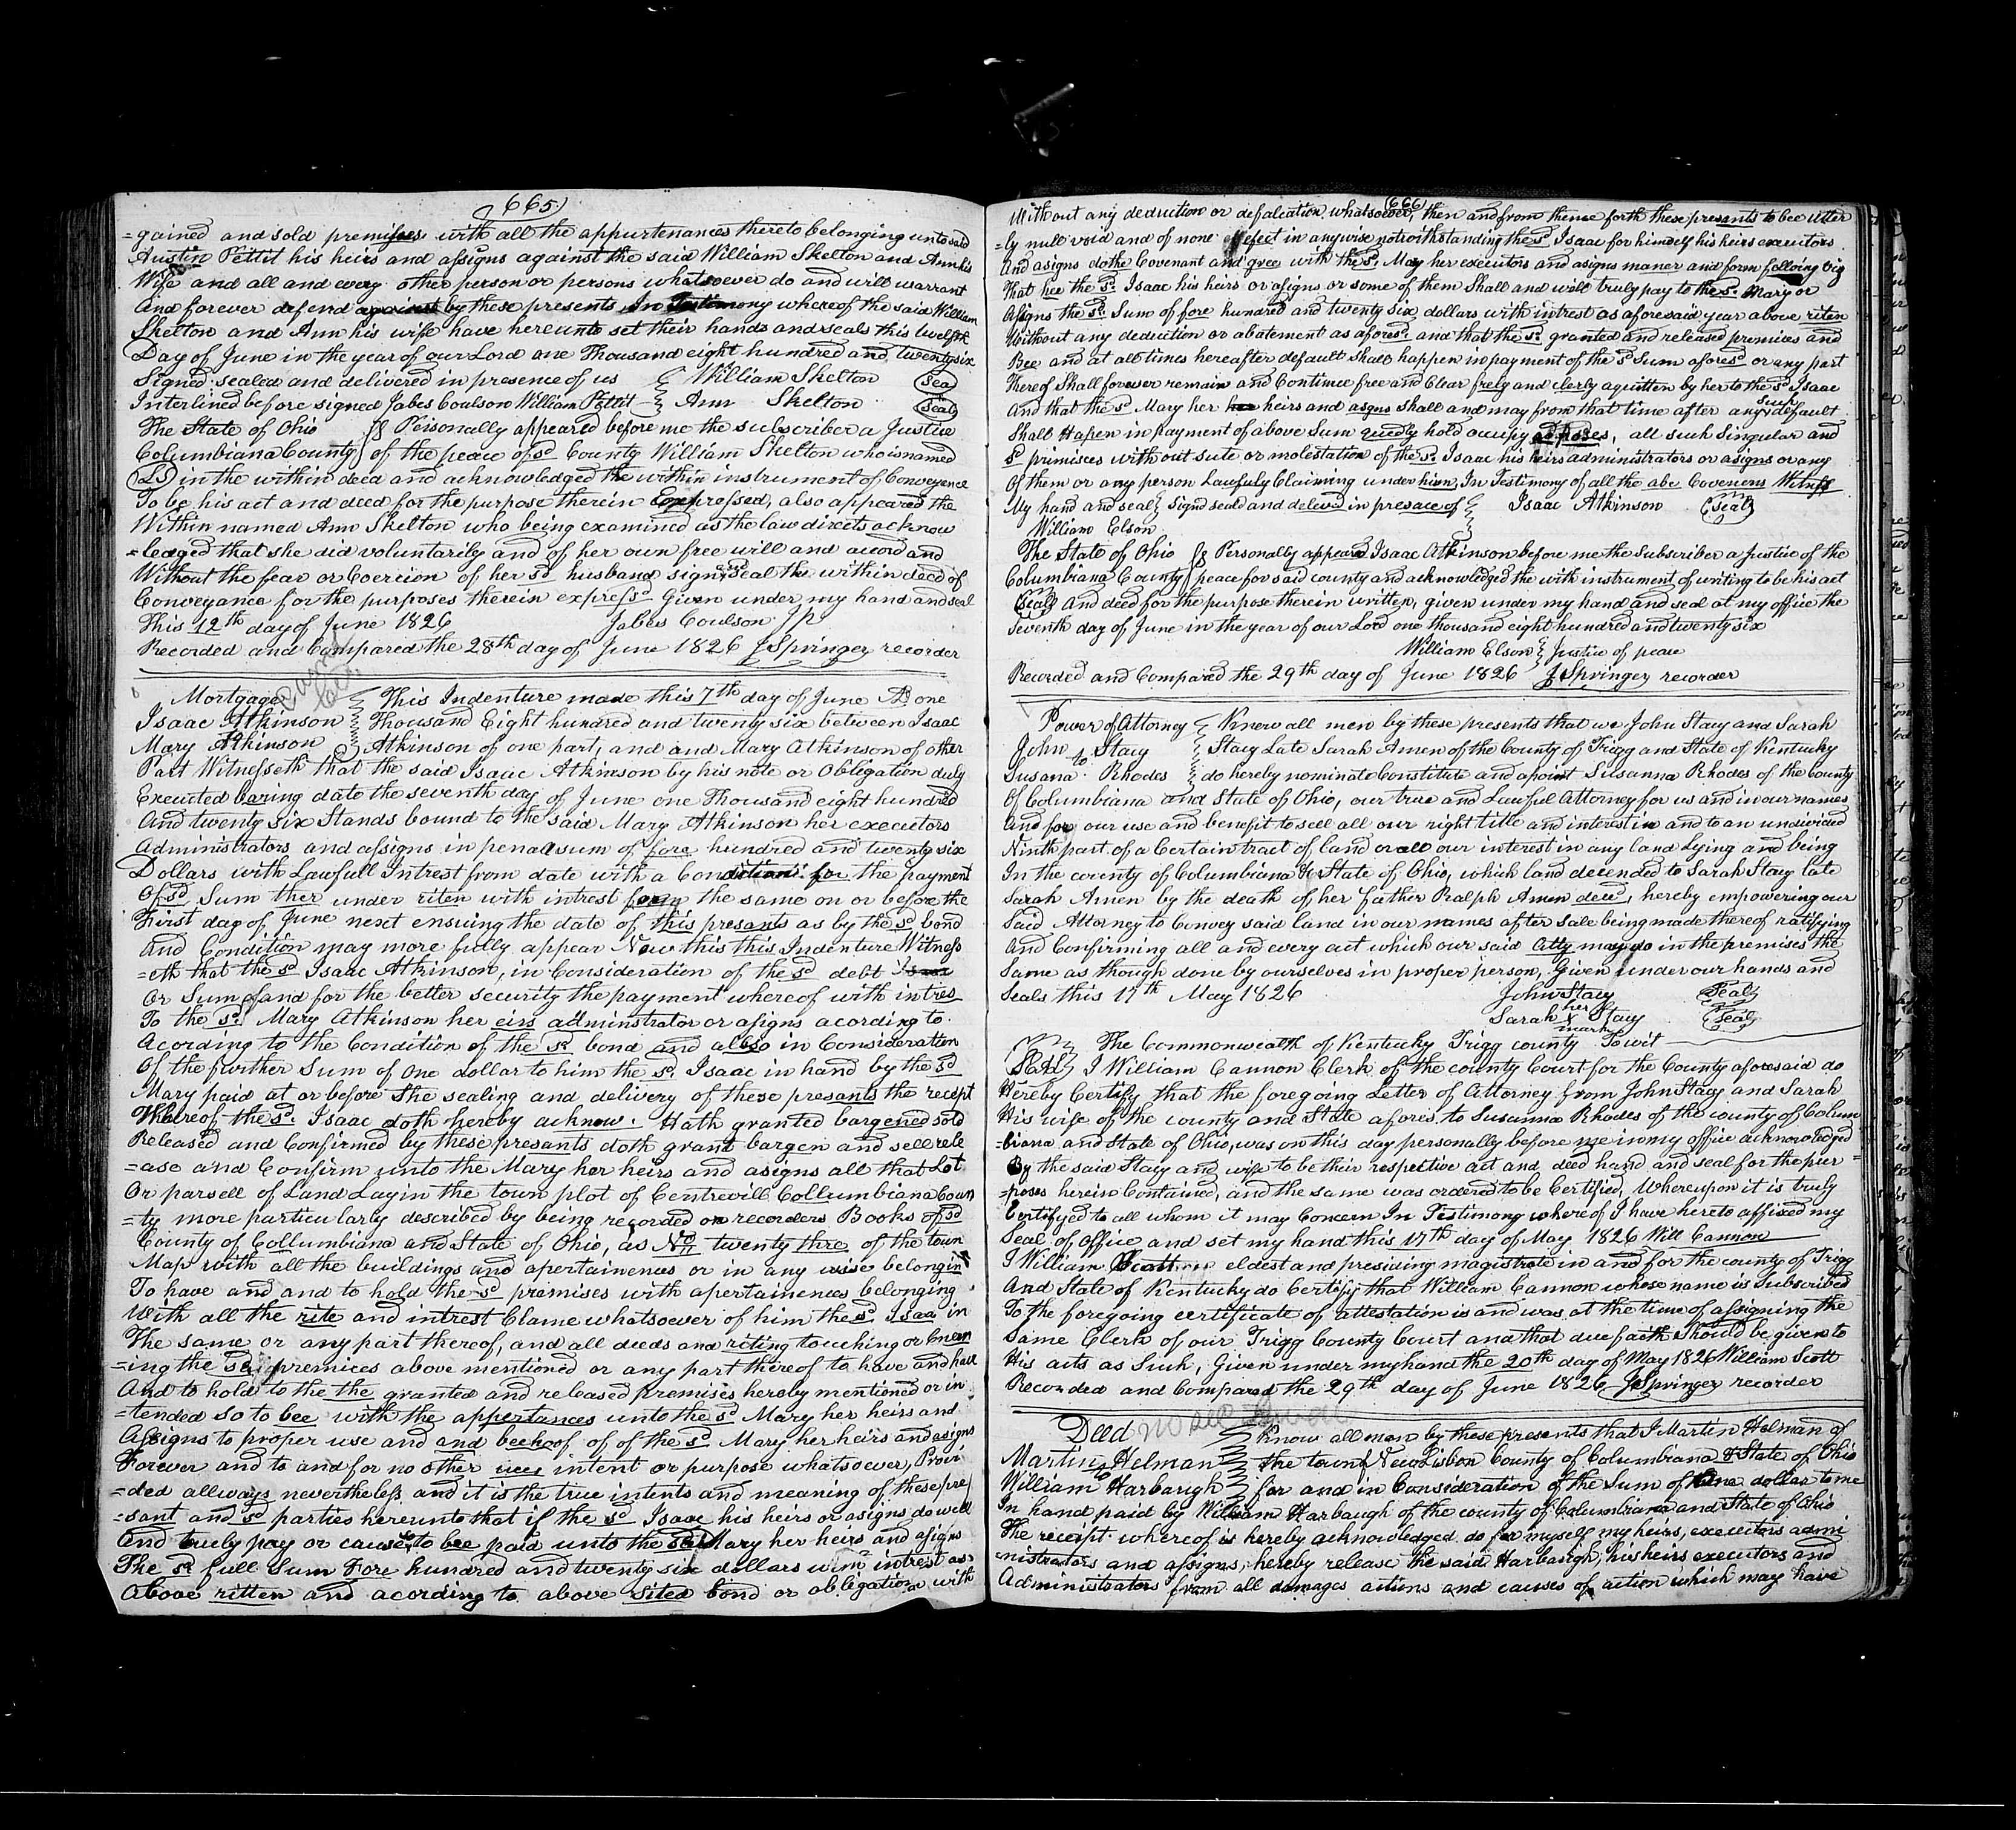 665
=gained and sold premises with all the appurtenances thereto belonging unto said
Austin Pettit his heirs and assigns against the said William Skelton and Ann his
Wife and all and every other person or persons whatsoever do and will warrant
And forever defend against by these presents In Testimony whereof the said William
Skelton and Ann his wife have hereunto set their hands and seals this twelfth
Day of June in the year of our Lord one Thousand eight hundred and twentysix
Signed sealed and delivered in presence of us William Skelton Seal
Interlined before signed Jabes Coulson William Pettit Ann Skelton Seal
The State of Ohio ss Personally appeared before me the subscriber a Justice
Columbiana County of the peace of sd County William Skelton who is named
LS in the within deed and acknowledged the within instrument of Conveyence
To be his act and deed for the purpose therein Expressed, also appeared the
Within named Ann Skelton who being examined as the law directs acknow
=ledged that she did voluntarily and of her own free will and accord and
Without the fear or Coercion of her sd husband sign and seal the within deed of
Conveyance for the purposes therein expressd Given under my hand and seal
This 12th day of June 1826 Jabes Coulson JP
Recorded and Compared the 28th day of June 1826 J Springer recorder
Mortgage This Indenture made this 7th day of June AD one
Isaac Atkinson Thousand Eight hundred and twenty six between Isaac
Mary Atkinson Atkinson of one part, and and Mary Atkinson of other
Part Witnesseth that the said Isaac Atkinson by his note or Obligation duly
Executed baring date the seventh day of June one Thousand eight hundred
And twenty six Stands bound to the said Mary Atkinson her executors
Administrators and assigns in penal sum of fore hundred and twenty six
Dollars with Lawfull Intrest from date with a Condition for the payment
Of sd Sum ther under riten with intrest for the same on or before the
First day of June next ensuing the date of this presants as by the sd bond
And Condition may more fully appear Now this this Indenture Witness
=eth that the sd Isaac Atkinson, in Consideration of the sd debt
Or Sum of and for the better security the payment whereof with intres
To the sd Mary Atkinson her eirs adminstrator or asigns acording to
Acording to the Condition of the sd bond and also in Consideration
Of the further Sum of One dollar to him the sd Isaac in hand by the sd
Mary paid at or before the sealing and delivery of these presants the recept
Whereof the sd Isaac doth hereby acknow: Hath granted bargened sold
Released and Confirmed by these presants doth grant bargen and sell rele
=ase and Confirm unto the Mary her heirs and asigns all that Lot
Or parsell of Land Lay in the town plot of Centrevill Collumbiana Coun
=ty more particularly described by being recorded on recorders Books of sd
County of Collumbiana and State of Ohio, as No twenty thre of the town
Map with all the buildings and apertainences or in any wise belongin
To have and and to hold the sd premises with apertainences belonging
With all the rite and intrest Clame whatsoever of him the sd Isaa in
The same or any part thereof, and all deeds and riting touching or Conearn
=ing the sd premices above mentioned or any part thereof to have and have
And to hold to the the granted and released premises hereby mentioned or in
=tended so to bee with the appertances unto the sd Mary her heirs and
Assigns to proper use and and beehoof of of the sd Mary her heirs and asigns
Forever and to and for no other uces intent or purpose whatsoever, Provi
=ded allways nevertheless and it is the true intents and meaning of these pre
=sant and sd parties hereunto that if the sd Isaac his heirs or asigns do well
And truely pay or cause to bee paid unto the sd Mary her heirs and asigns
The sd full Sum Fore hundred and twenty six dollars with intrest as
Above ritten and acording to above Sited bond or obligation with
666
Without any deduction or defalcation whatsoever, then and from thence forth these presants to bee utter
=ly null void and of none effect in anywise notwithstanding the sd Isaac for himself his heirs executors
And asigns doth Covenant and gree with the sd Mary her executors and asigns maner and form folloing Viz
That hee the sd Isaac his heirs or asigns or some of them Shall and will truly pay to the sd Mary or
Assigns the sd Sum of fore hundred and twenty six dollars with intrest as aforesaid year above riten
Without any deduction or abatement as aforesd and that the sd granted and released premices and
Bee and at all times hereafter default Shall happen in payment of the sd Sum aforesd or any part
Thereof Shall forever remain and Continue free and Clear frely and clerly aquitten by her to the sd Isaac
And that the sd Mary her heirs and asgns Shall and may from that time after any such default
Shall Hapen in payment of above Sum hold occupy all such Singular and
sd primisces with out sute or molestation of the sd Isaac his heirs administrators or asigns or any
Of them or any person Lawfuly Claiming under him, In Testimony of all the abe Covenens Witness
My hand and seal Signd seald and deliverd in presace of Isaac Atkinson Seal
William Elson
The State of Ohio ss Personally appeard Isaac Atkinson before me the Subscriber a Justice of the
Columbiana County peace for said county and acknowledged the with instrument of writing to be his act
Seal And deed for the purpose therein written, given under my hand and seal at my office the
Seventh day of June in the year of our Lord one thousand eight hundred and twenty six
William Elson Justice of peace
Recorded and Compared the 29th day of June 1826 J Springer recorder
Power of Attorney Know all men by these presents that we John Stacy and Sarah
John Stacy Stacy Late Sarah Amen of the County of Trigg and State of Kentucky
to
Susana Rhodes do hereby nominate Constitute and apoint Susanna Rhodes of the County
Of Columbiana and State of Ohio, our true and Lawful Attorney for us and in our names
And for our use and benefit to sell all our right title and interest in and to an undivided
Ninth part of a Certain tract of land or all our interest in any land Lying and being
In the county of Columbiana & State of Ohio, which land decended to Sarah Stacy late
Sarah Amen by the death of her Father Ralph Amen decd, hereby empowering our
Said Attorney to Convey said land in our names after sale being made thereof ratifying
And Confirming all and every act which our said Atty may do in the premises the
Same as though done by ourselves in proper person, Given under our hands and
Seals this 17th May 1826 John Stacy Seal
Sarah her x mark Stacy Seal
The Commonwealth of Kentucky Trigg county Towit
Seal I William Cannon Clerk of the county Court for the County aforesaid do
Hereby Certify that the foregoing Letter of Attorney from John Stacy and Sarah
His wife of the county and State afores to Susanna Rhodes of the county of Colum
=biana and State of Ohio, was on this day personally before me in my office acknowledged
By the said Stacy and wife to be their respective act and deed hand and seal for the pur=
=poses herein Contained, and the same was ordered to be Certified, Whereupon it is truly
Certifyed to all whom it may Concern In Testimony whereof I have hereto affixed my
Seal of Office and set my hand this 17th day of May 1826 Will Cannon
I William Scott eldest and presiding magistrate in and for the county of Trigg
And State of Kentucky do Certify that William Cannon whose name is subscribed
To the foregoing certificate of attestation is and was at the time of assigning the
Same Clerk of our Trigg County Court and that due faith Should be given to
His acts as Such, Given under my hand the 20th day of May 1826 William Scott
Recorded and Compared the 29th day of June 1826 J Springer recorder
Deed Know all men by these presents that I Martin Helman of
Martin Helman the town of New Lisbon County of Columbiana & State of Ohio
to
William Harbaugh for and in Consideration of the Sum of One dollar to me
In hand paid by William Harbaugh of the county of Columbiana and State of Ohio
The receipt whereof is hereby acknowledged do for myself my heirs, executors admi
nistrators and assigns, hereby release the said Harbaugh, his heirs executors and
Administrators from all damages actions and causes of action which may have